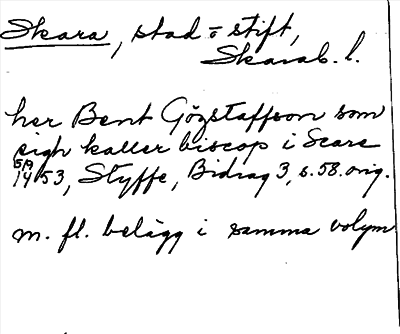 Skara, stad o stift,
Skarab. l.
her Bent Gözstaffson som
sigh kaller biscop i Scare
5/9
1453, Styffe, Bidrag 3, s. 58. orig.
m. fl. belägg i samma volym